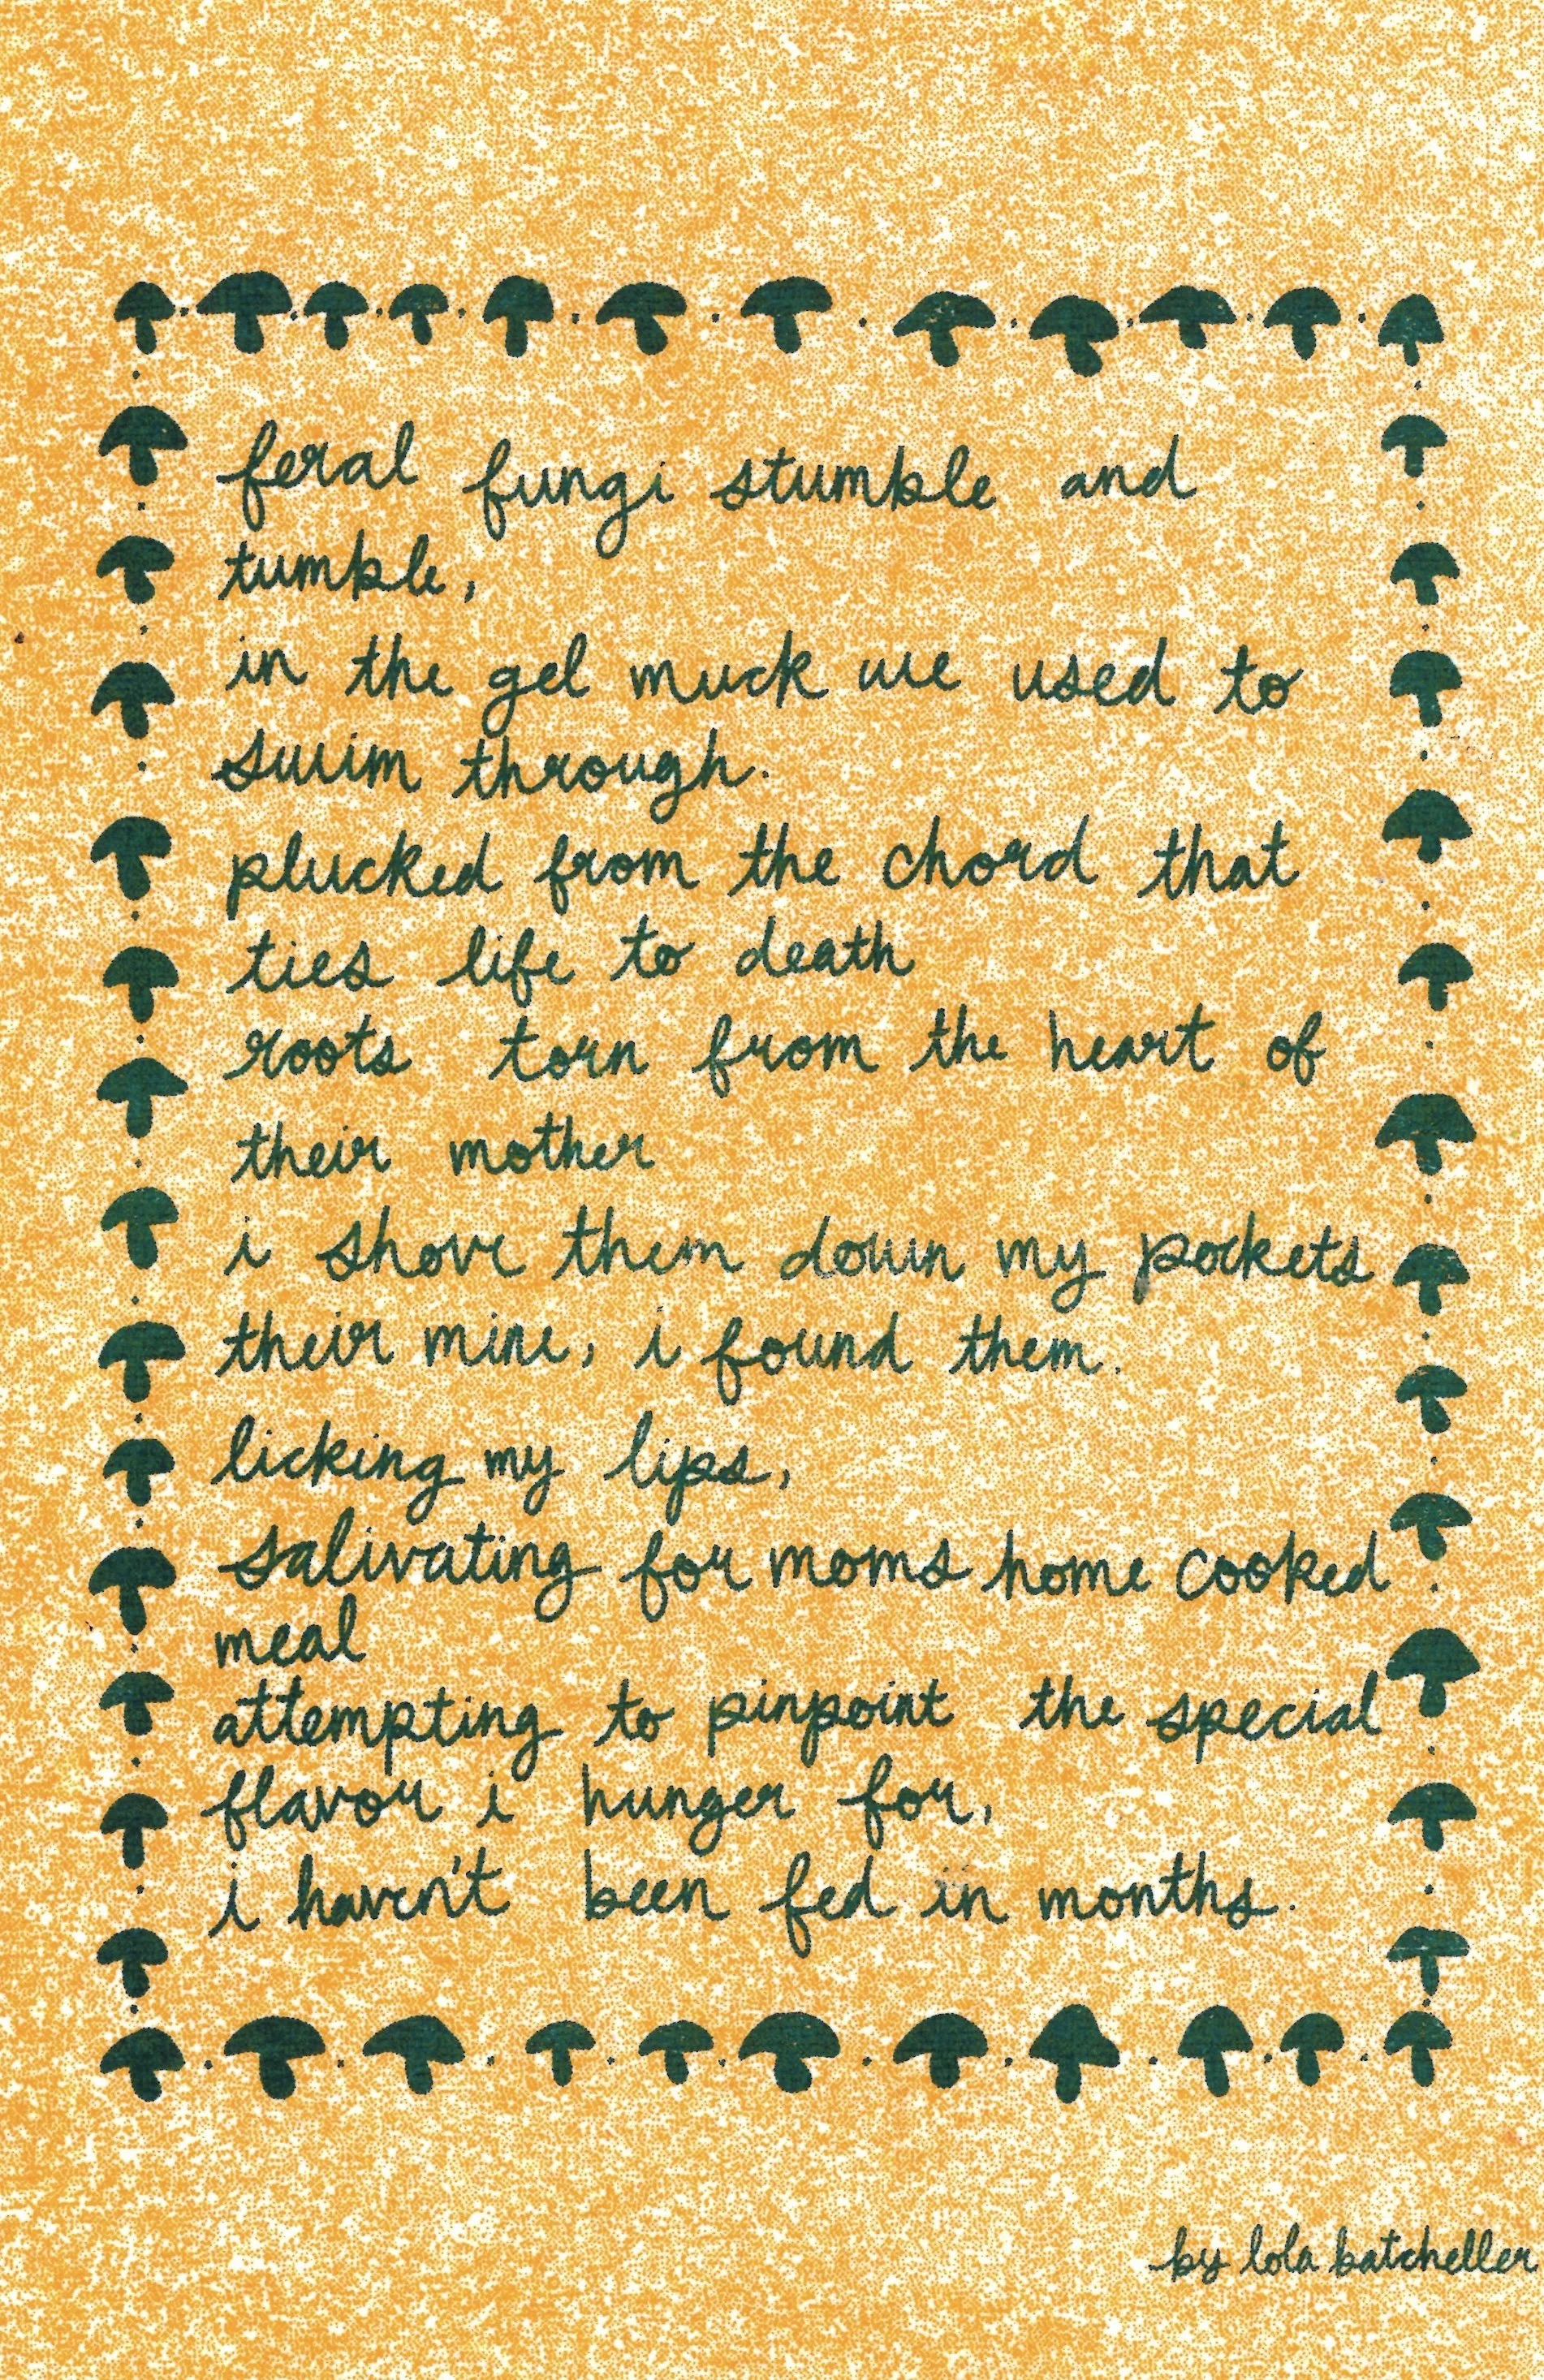 feral fungi stumble and
tumble,
in the gel muck we used to
swim through.
plucked from the chord that
ties life to death
roots torn from the heart of
their mother
i shove them down my pockets
their mine, i found them.
licking my lips,
salivating for moms home cooked
meal
attempting to pinpoint the special
flavor i hunger for,
i haven't been fed in months.
by lola batcheller